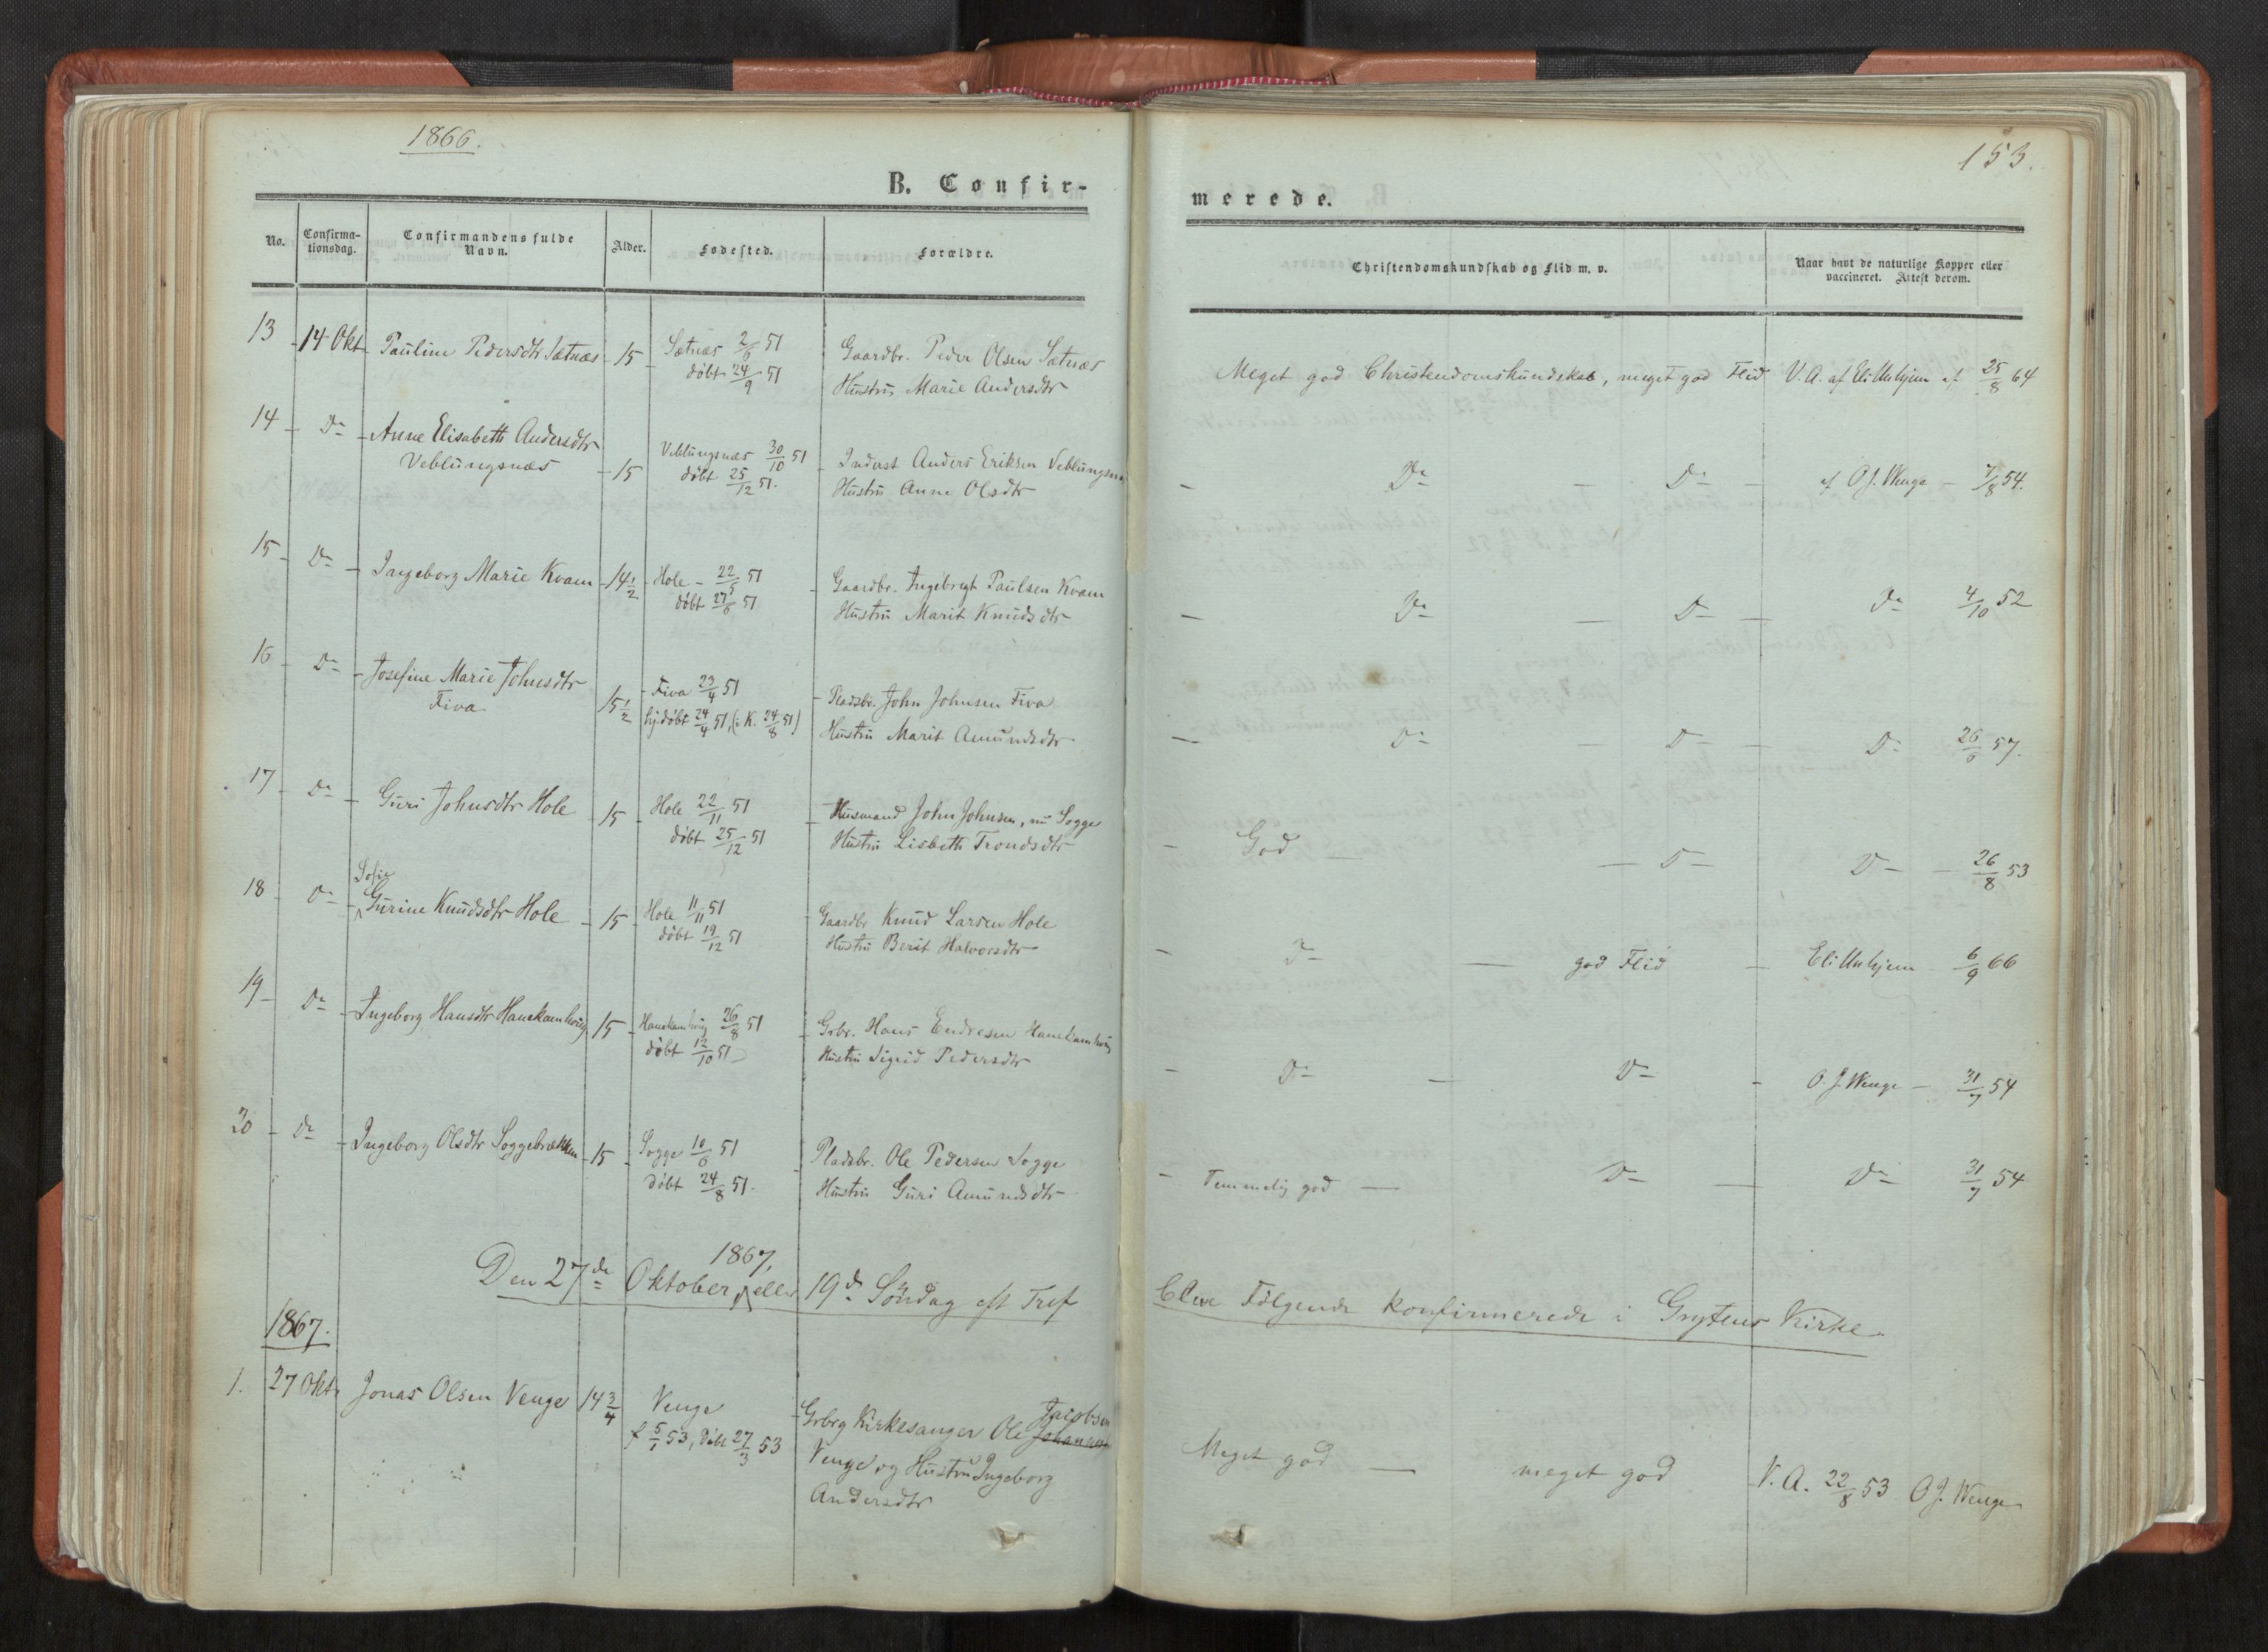 1866.
153.
B. Confir-
merede.
No.
Confirma-
tionsdag.
Confirmandens fulde
Navn.
Alder.
Fødested.
Forældre.
Christendomskundskab og Flid m. v.
Naar havt de naturlige Kopper eller
vaccineret. Attest derom.
13 - 14 Okt - Pauline Pedersdtr Sætnæs - 15 - Sætnæs 2/6 51 Gaardbr. Peder Olsen Sætnæs
døbt 24/9 51 Hustru Marie Andersdtr
Meget god Christendomskundskab, meget god Flid V. A. af Eli Unhjem af 25/8 64
14 - Do - Anne Elisabeth Andersdtr
Veblungsnæs - 15 Veblungsnæs 30/10 51 - Inderst Anders Eriksen Veblungsnæs
døbt 25/12 51. Hustru Anne Olsdtr
- Do - Do - af O J. Wenge - 7/8 54.
15 - Do - Ingeborg Marie Kvam - 14 1/2 - Hole - 22/5 51 - Gaardbr. Ingebrigt Paulsen Kvam
døbt 27/6 51 Hustru Marit Knudsdtr
- Do - Do - Do 4/10 52
16 - Do - Josefine Marie Johnsdtr
Fiva 15 1/2 - Fiva 23/4 51 - Pladsbr. John Johnsen Fiva
hjdøbt 24/4 51, (i K. 24/8 51) Hustru Marit Amundsdtr
- Do - Do - Do 26/6 57.
17 - Do - Guri Johnsdtr Hole - 15 - Hole 22/11 51 - Husmand John Johnsen, nu Sogge
døbt 25/12 51 Hustru Lisbeth Trondsdtr
- God - - Do - Do - 26/8 53
Sofie
18 - Do - Gurine Knudsdtr Hole - 15 - Hole 11/11 51 Gaardbr Knud Larsen Hole
døbt 19/12 51 Hustru Berit Halvorsdtr
- Do - god Flid - Eli Unhjem 6/9 66
19 - Do - Ingeborg Hansdtr Hanekamhoug 15 - Hanekamhoug 26/8 51 - Grbr. Hans Endresen Hanekamhoug
døbt 12/10 51 Hustru Sigrid Pedersdtr
- Do - Do - O. J. Wenge - 31/7 54
20 - Do - Ingeborg Olsdtr Soggebrækken - 15 - Sogge 10/6 51 - Pladsbr. Ole Pedersen Sogge
døbt 24/8 51. Hustru Guri Amundsdtr
- Temmelig god - Do - Do 31/7 54
1867,
Den 27de Oktober, eller 19de Søndag eft Tref
bleve Følgende konfirmerede i Gryttens Kirke
1867.
1. 27 Okt. Jonas Olsen Venge 14 3/4 Venge - Grbr og Kirkesanger Ole Johannsen Jacobsen
f 5/1 53, døbt 27/3 53 Venge og Hustru Ingeborg
Andersdtr
Meget god - meget god V. A. 22/8 53 O J. Wenge